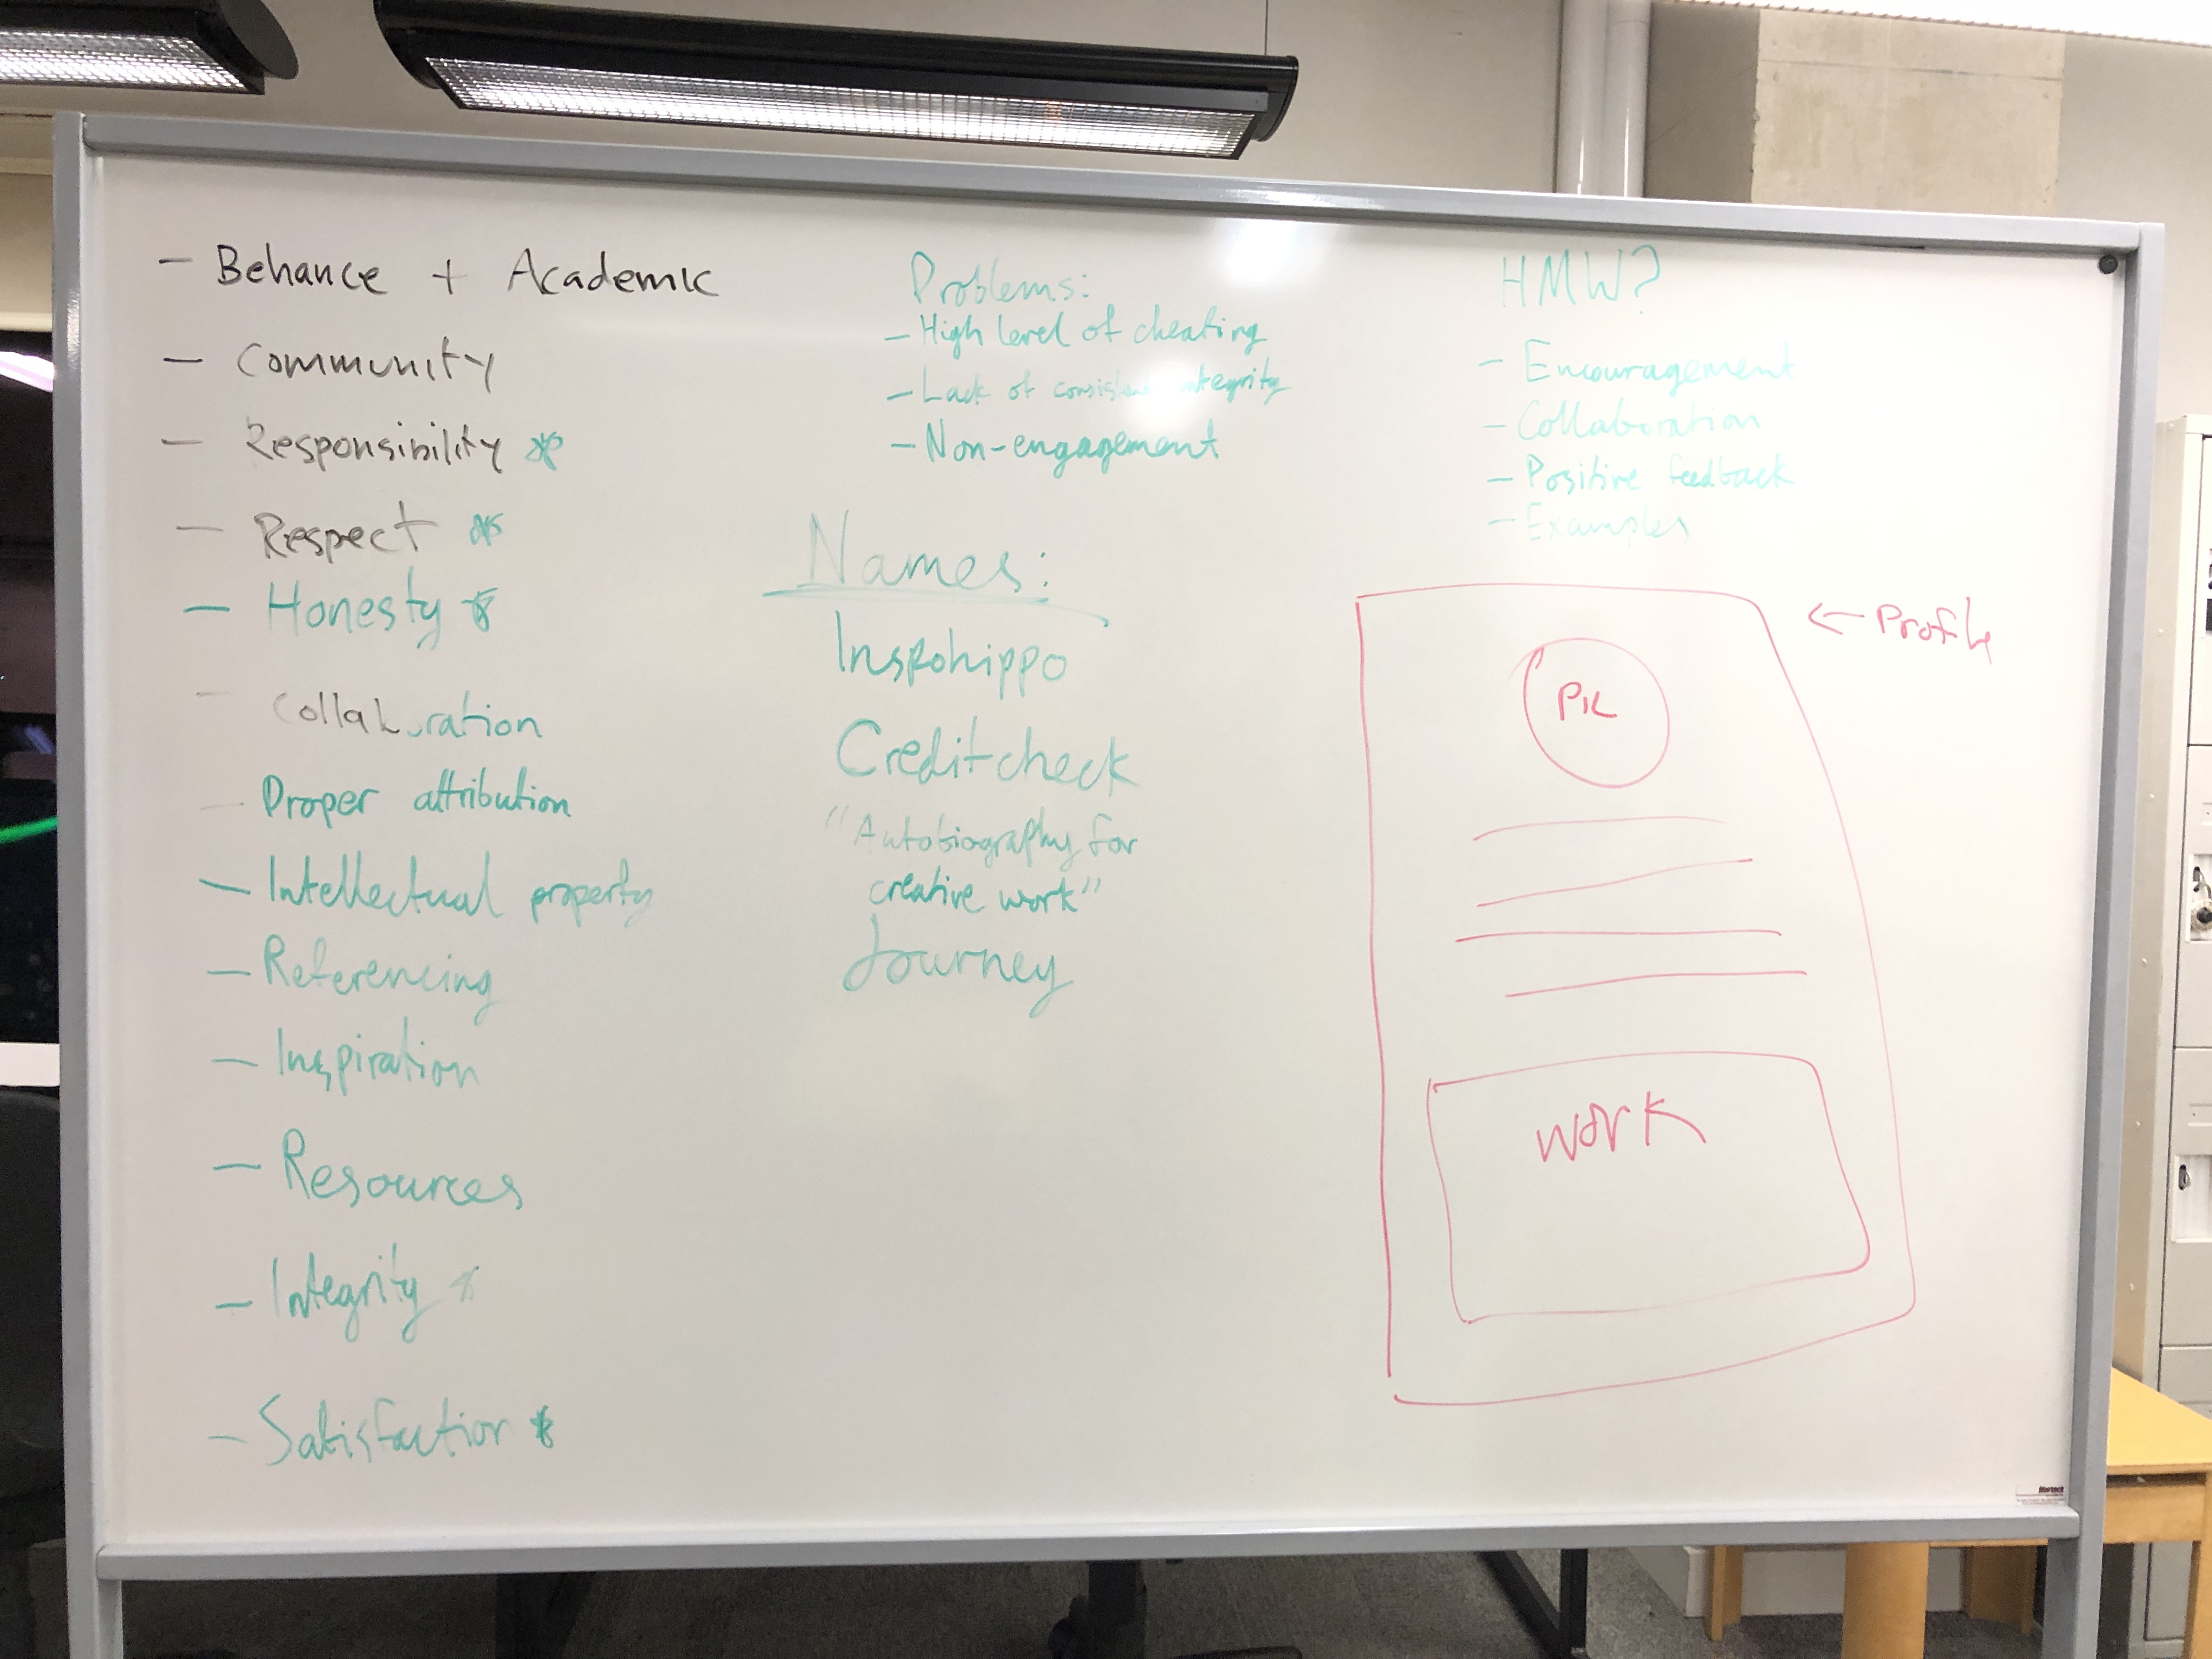 - Behance + Academic
- Community
- Responsibility *
- Respect *
- Honesty *
- Collaboration
- Proper attribution
- Intellectual property
- Referencing
- Inspiration
- Resources
- Integrity *
- Satisfaction *
Problems:
- High level of cheating
- Lack of consistent integrity
- Non-engagement
Names:
Inspohippo
Creditcheck
"Autobiography for
creative work"
Journey
HMW?
- Encouragement
- Collaboration
- Positive feedback
- Examples
← Profile
PIC
WORK